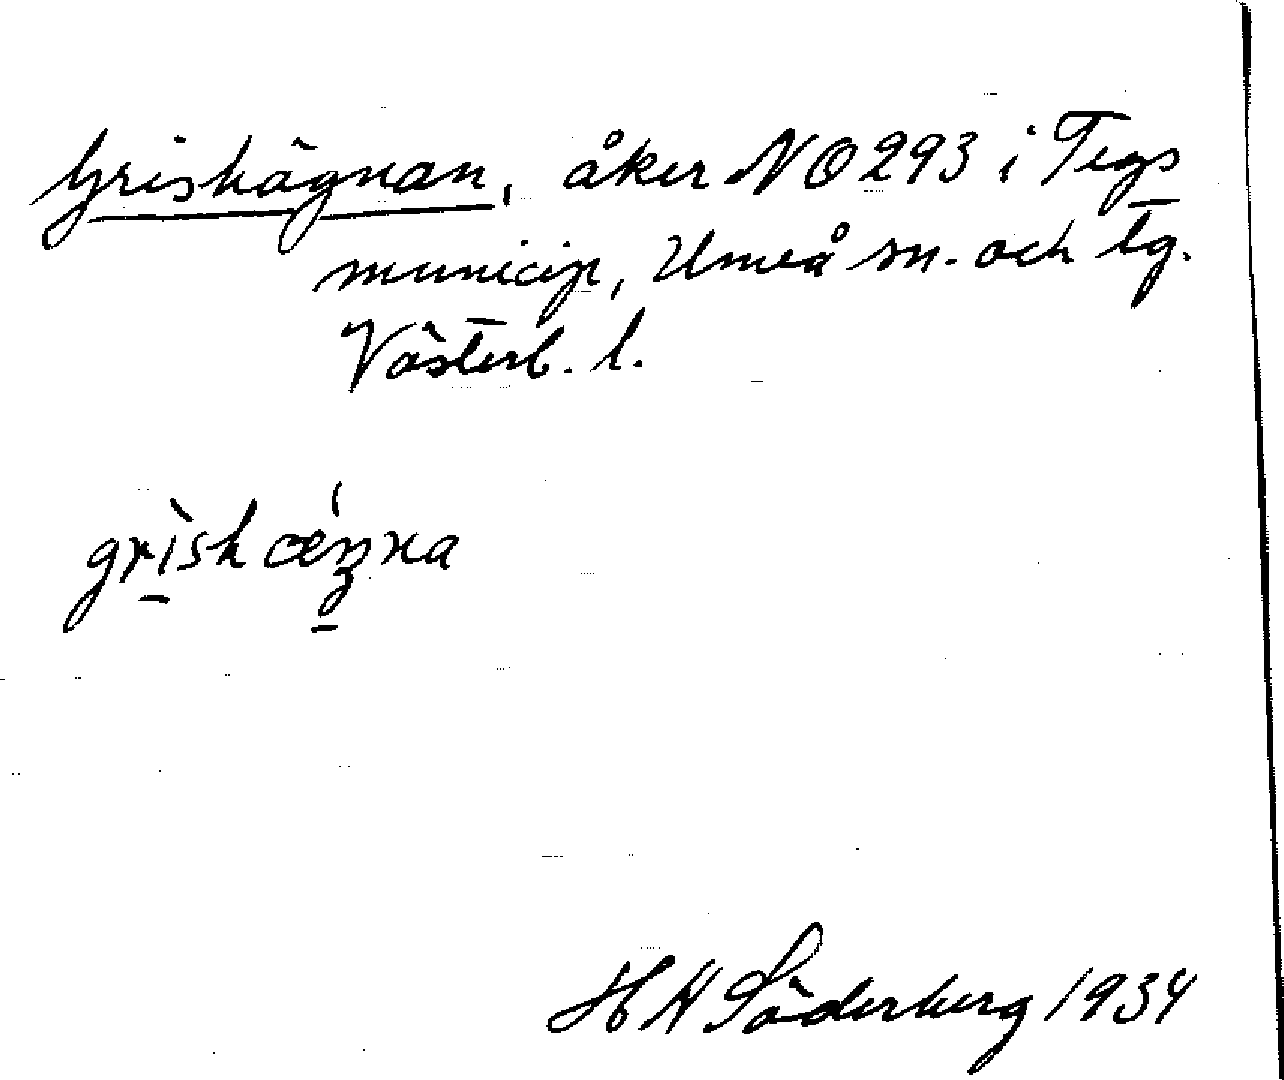 Grishägnan, åker NO 293 i Tegs
municip, Umeå sn. och tg.
Västerb. l.
grishœŋna
H H Söderberg 1934